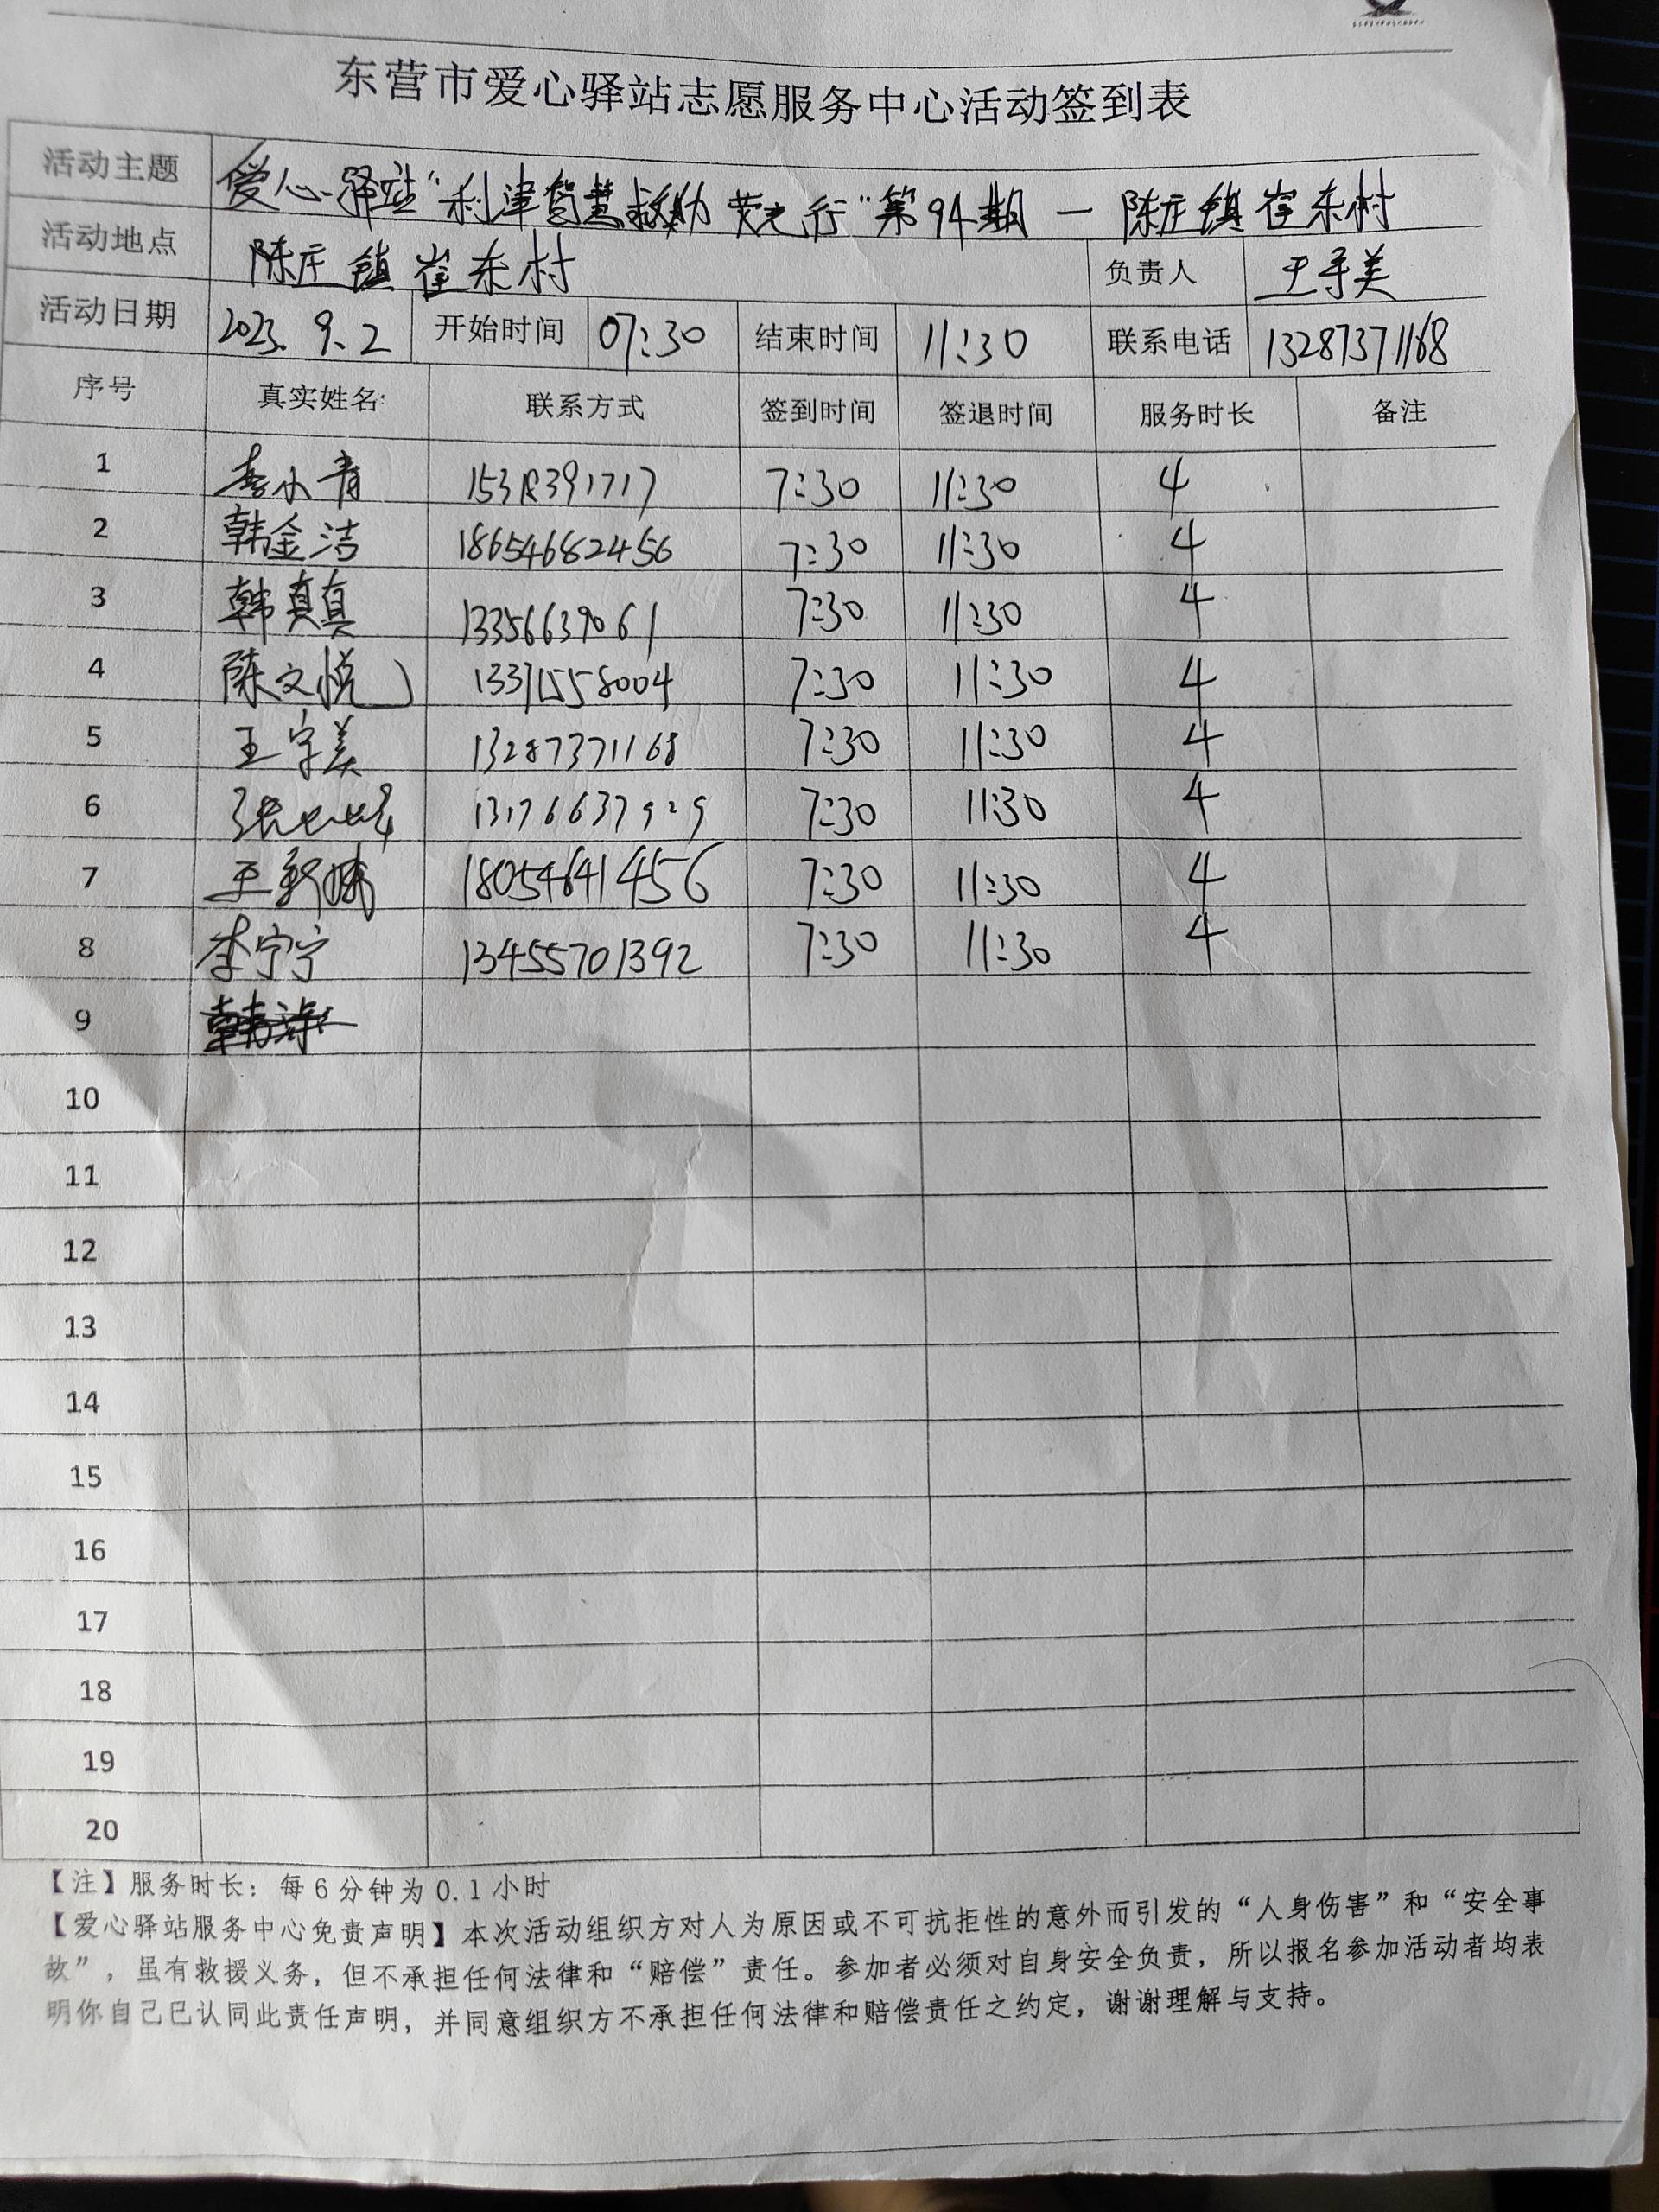 东营市爱心驿站志愿服务中心活动签到表
活动主题 爱心驿站“利津智慧救助 荧光行”第94期 — 陈庄镇崔东村
活动地点 陈庄镇崔东村 负责人 王守美
活动日期 2023.9.2 开始时间 07:30 结束时间 11:30 联系电话 13287371168
序号 真实姓名: 联系方式 签到时间 签退时间 服务时长 备注
1 李小青 7:30 11:30 4
2 韩金洁 18654682456 7:30 11:30 4
3 韩真真 13356639061 7:30 11:30 4
4 陈文悦 13371558004 7:30 11:30 4
5 王守美 13287371168 7:30 11:30 4
6 13176637929 7:30 11:30 4
7 18054641456 7:30 11:30 4
8 李宁宁 13455701392 7:30 11:30 4
9
10
11
12
13
14
15
16
17
18
19
20
【注】服务时长：每6分钟为0.1小时
【爱心驿站服务中心免责声明】本次活动组织方对人为原因或不可抗拒性的意外而引发的“人身伤害”和“安全事
故”，虽有救援义务，但不承担任何法律和“赔偿”责任。参加者必须对自身安全负责，所以报名参加活动者均表
明你自己已认同此责任声明，并同意组织方不承担任何法律和赔偿责任之约定，谢谢理解与支持。